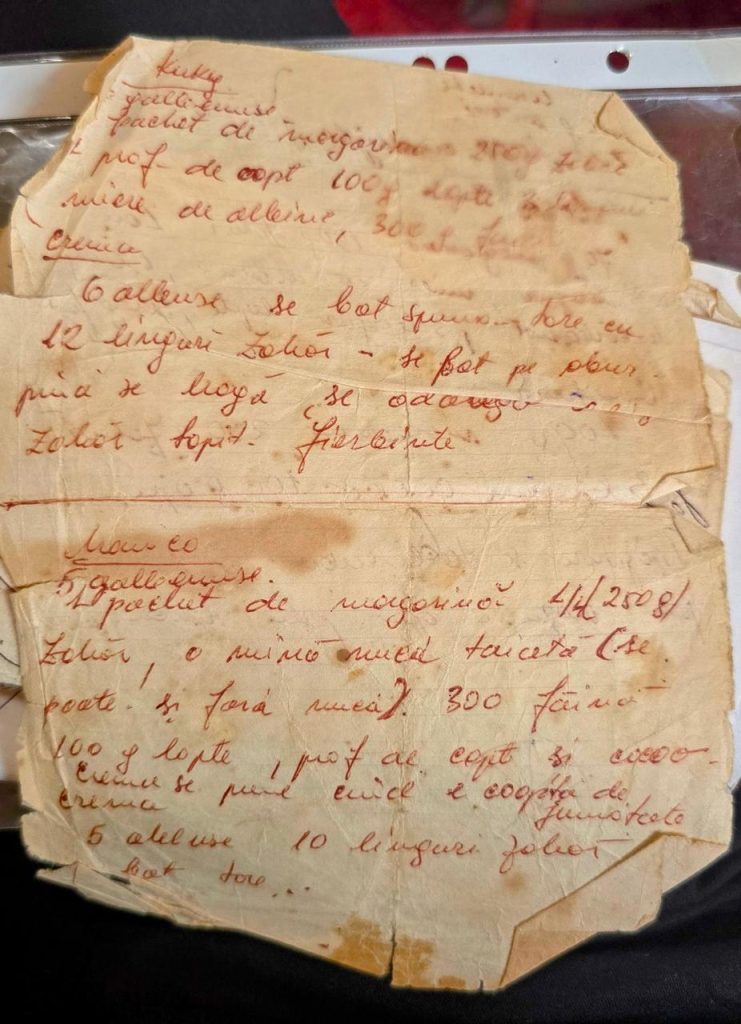 Kuky
galbenuse
pachet de margarina 250g zahăr
1 praf de copt 100g lapte
miere de albine, 300 g
Crema
6 albuse se bat spuma tare cu
12 linguri zahăr - se bat pe abur
pînă se leagă, se adaugă
zahăr topit fierbinte.
5 galbenuse.
1 pachet de margarină 1/4 (250g)
zahăr, o mînă nucă taiată (se
poate și fară nucă). 300 făină
100 g lapte, praf de copt și cacao
Crema se pune cînd e coaptă de
jumătate
crema
5 albuse 10 linguri zahăr
bat tare...